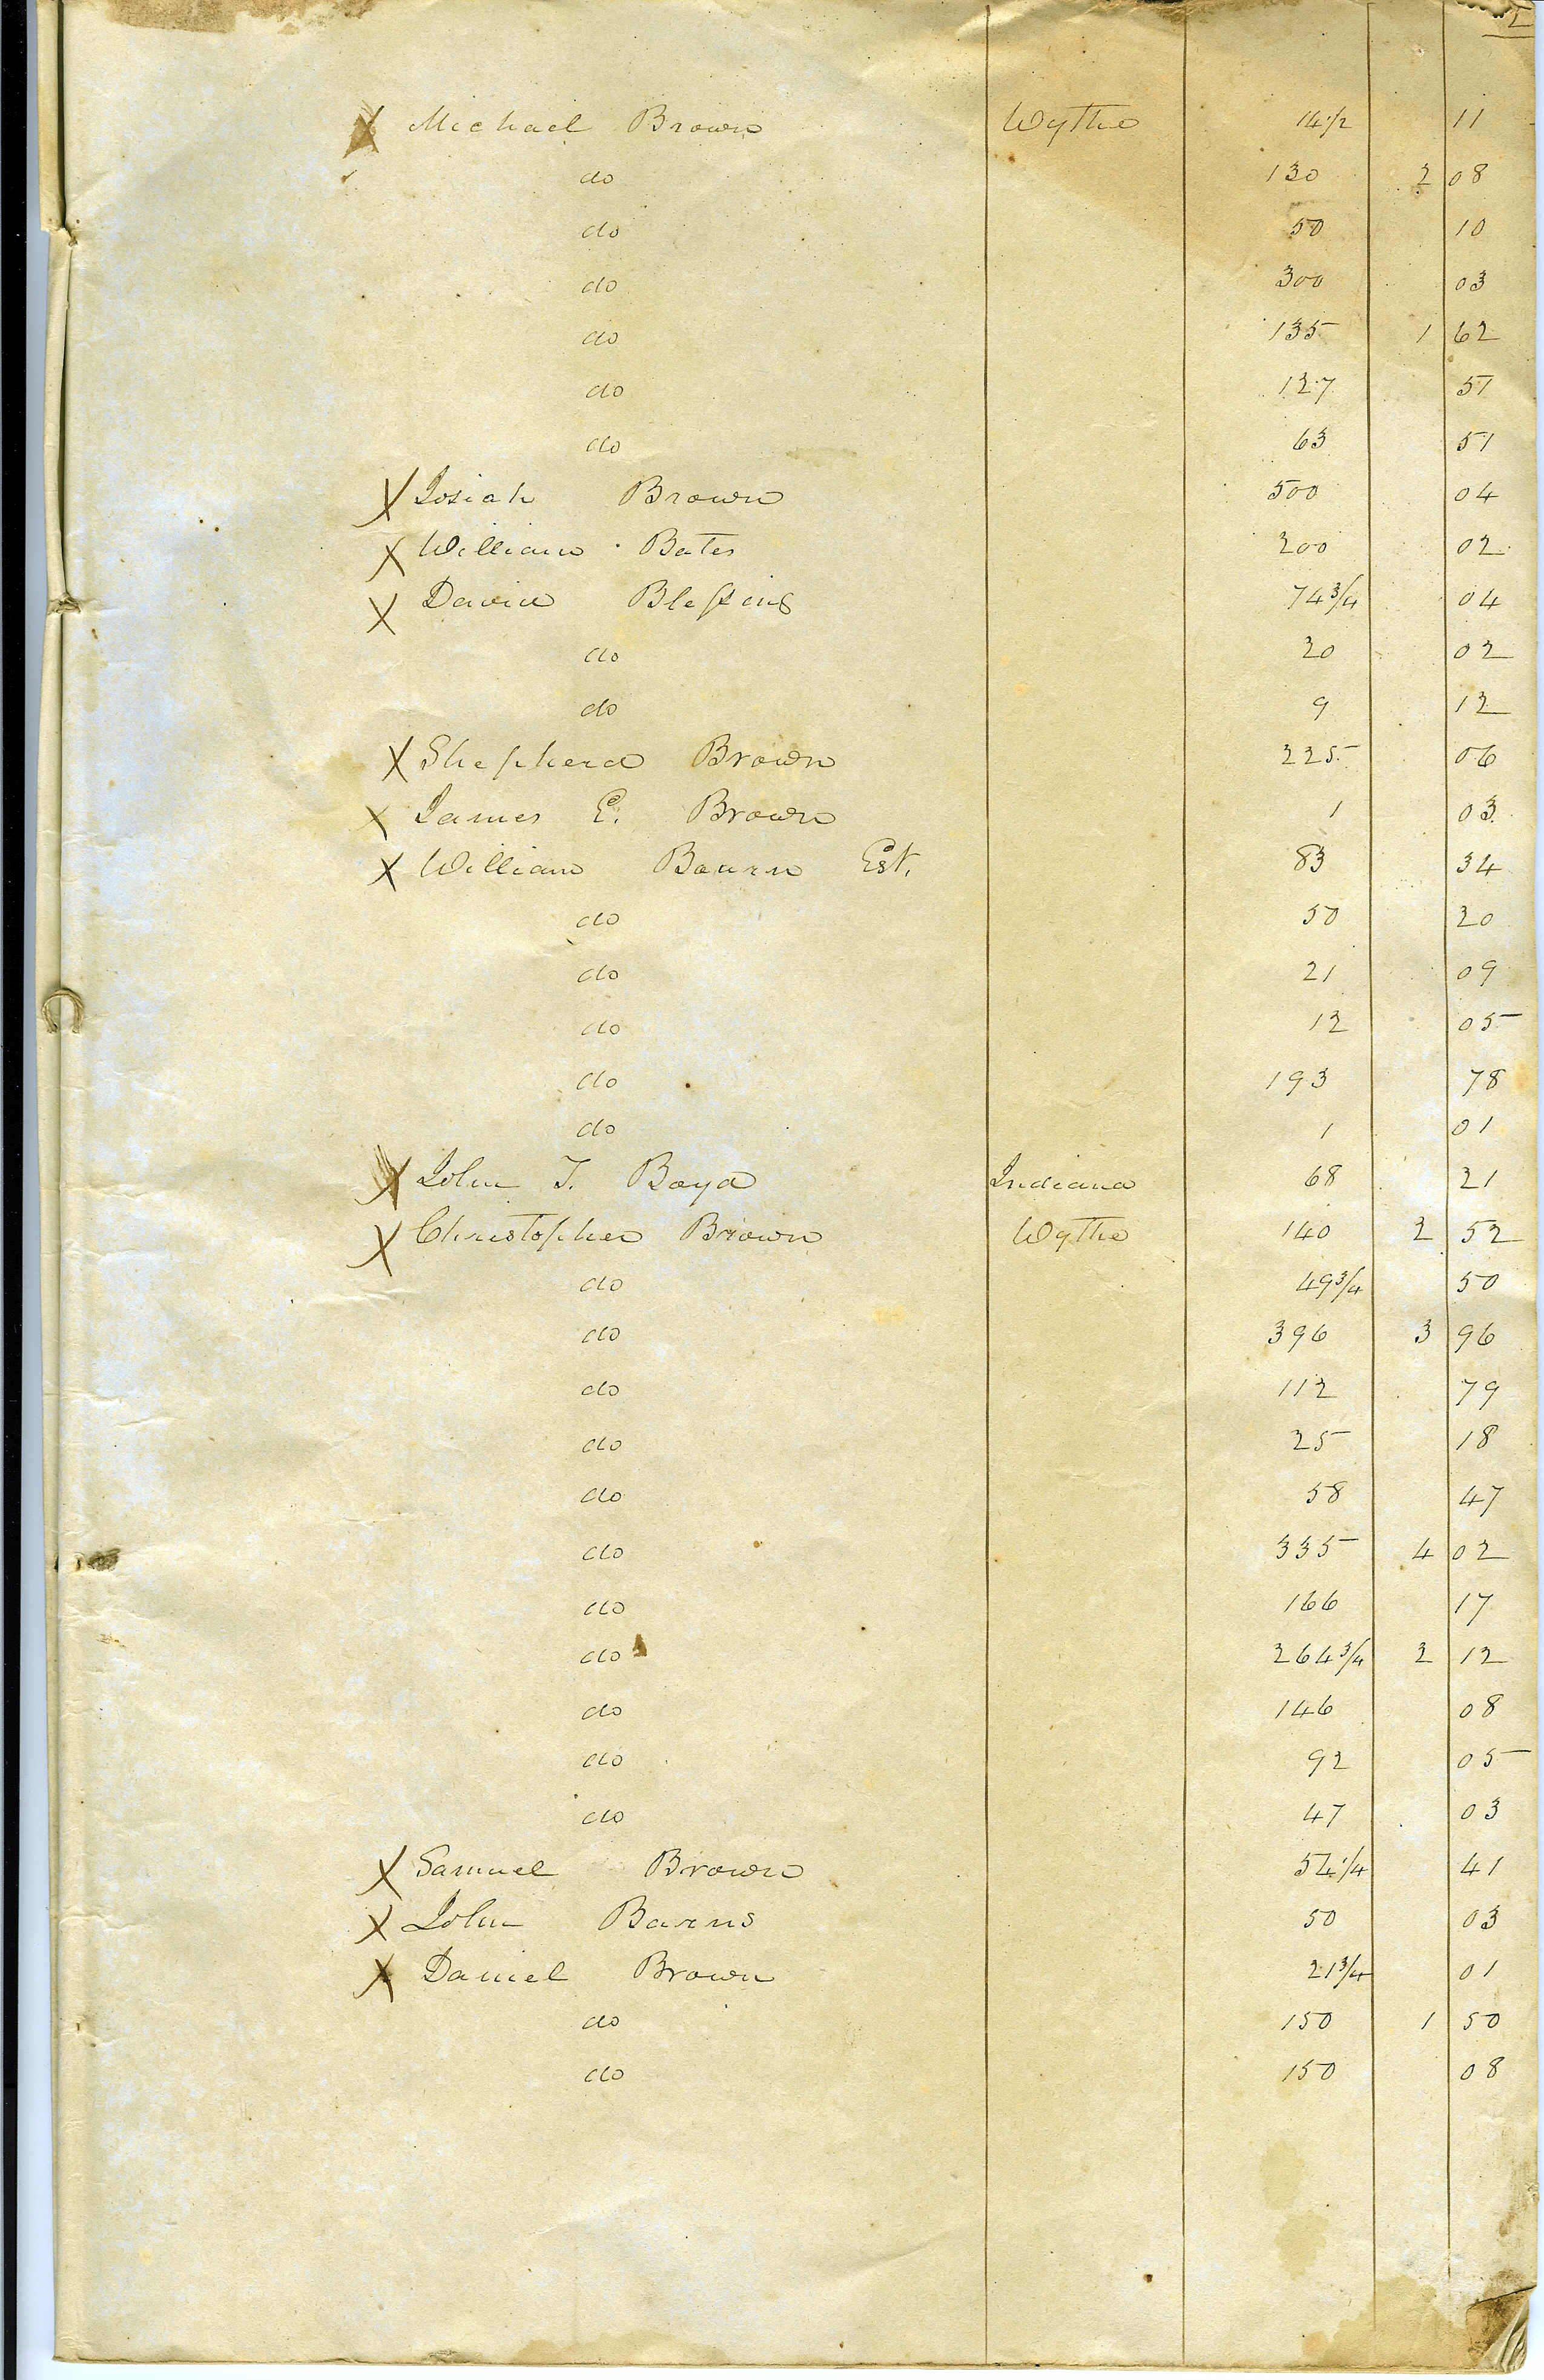 X Michael Brown Wythe 14 1/2 11
do 130 2 08
do 50 10
do 300 03
do 135 1 62
do 127 51
do 63 51
X Josiah Brown 500 04
X William Bates 200 02
X David Blessing 74 3/4 04
do 20 02
do 9 12
X Shepherd Brown 225 06
X James E. Brown 1 03
X William Bourn Est. 83 34
do 50 20
do 21 09
do 12 05
do 193 78
do 1 01
X John T. Boyd Indiana 68 21
X Christopher Brown Wythe 140 2 52
do 49 3/4 50
do 396 3 96
do 112 79
do 25 18
do 58 47
do 335 4 02
do 166 17
do 264 3/4 2 12
do 146 08
do 92 05
do 47 03
X Samuel Brown 54 1/4 41
X John Barns 50 03
X Daniel Brown 21 3/4 01
do 150 1 50
do 150 08